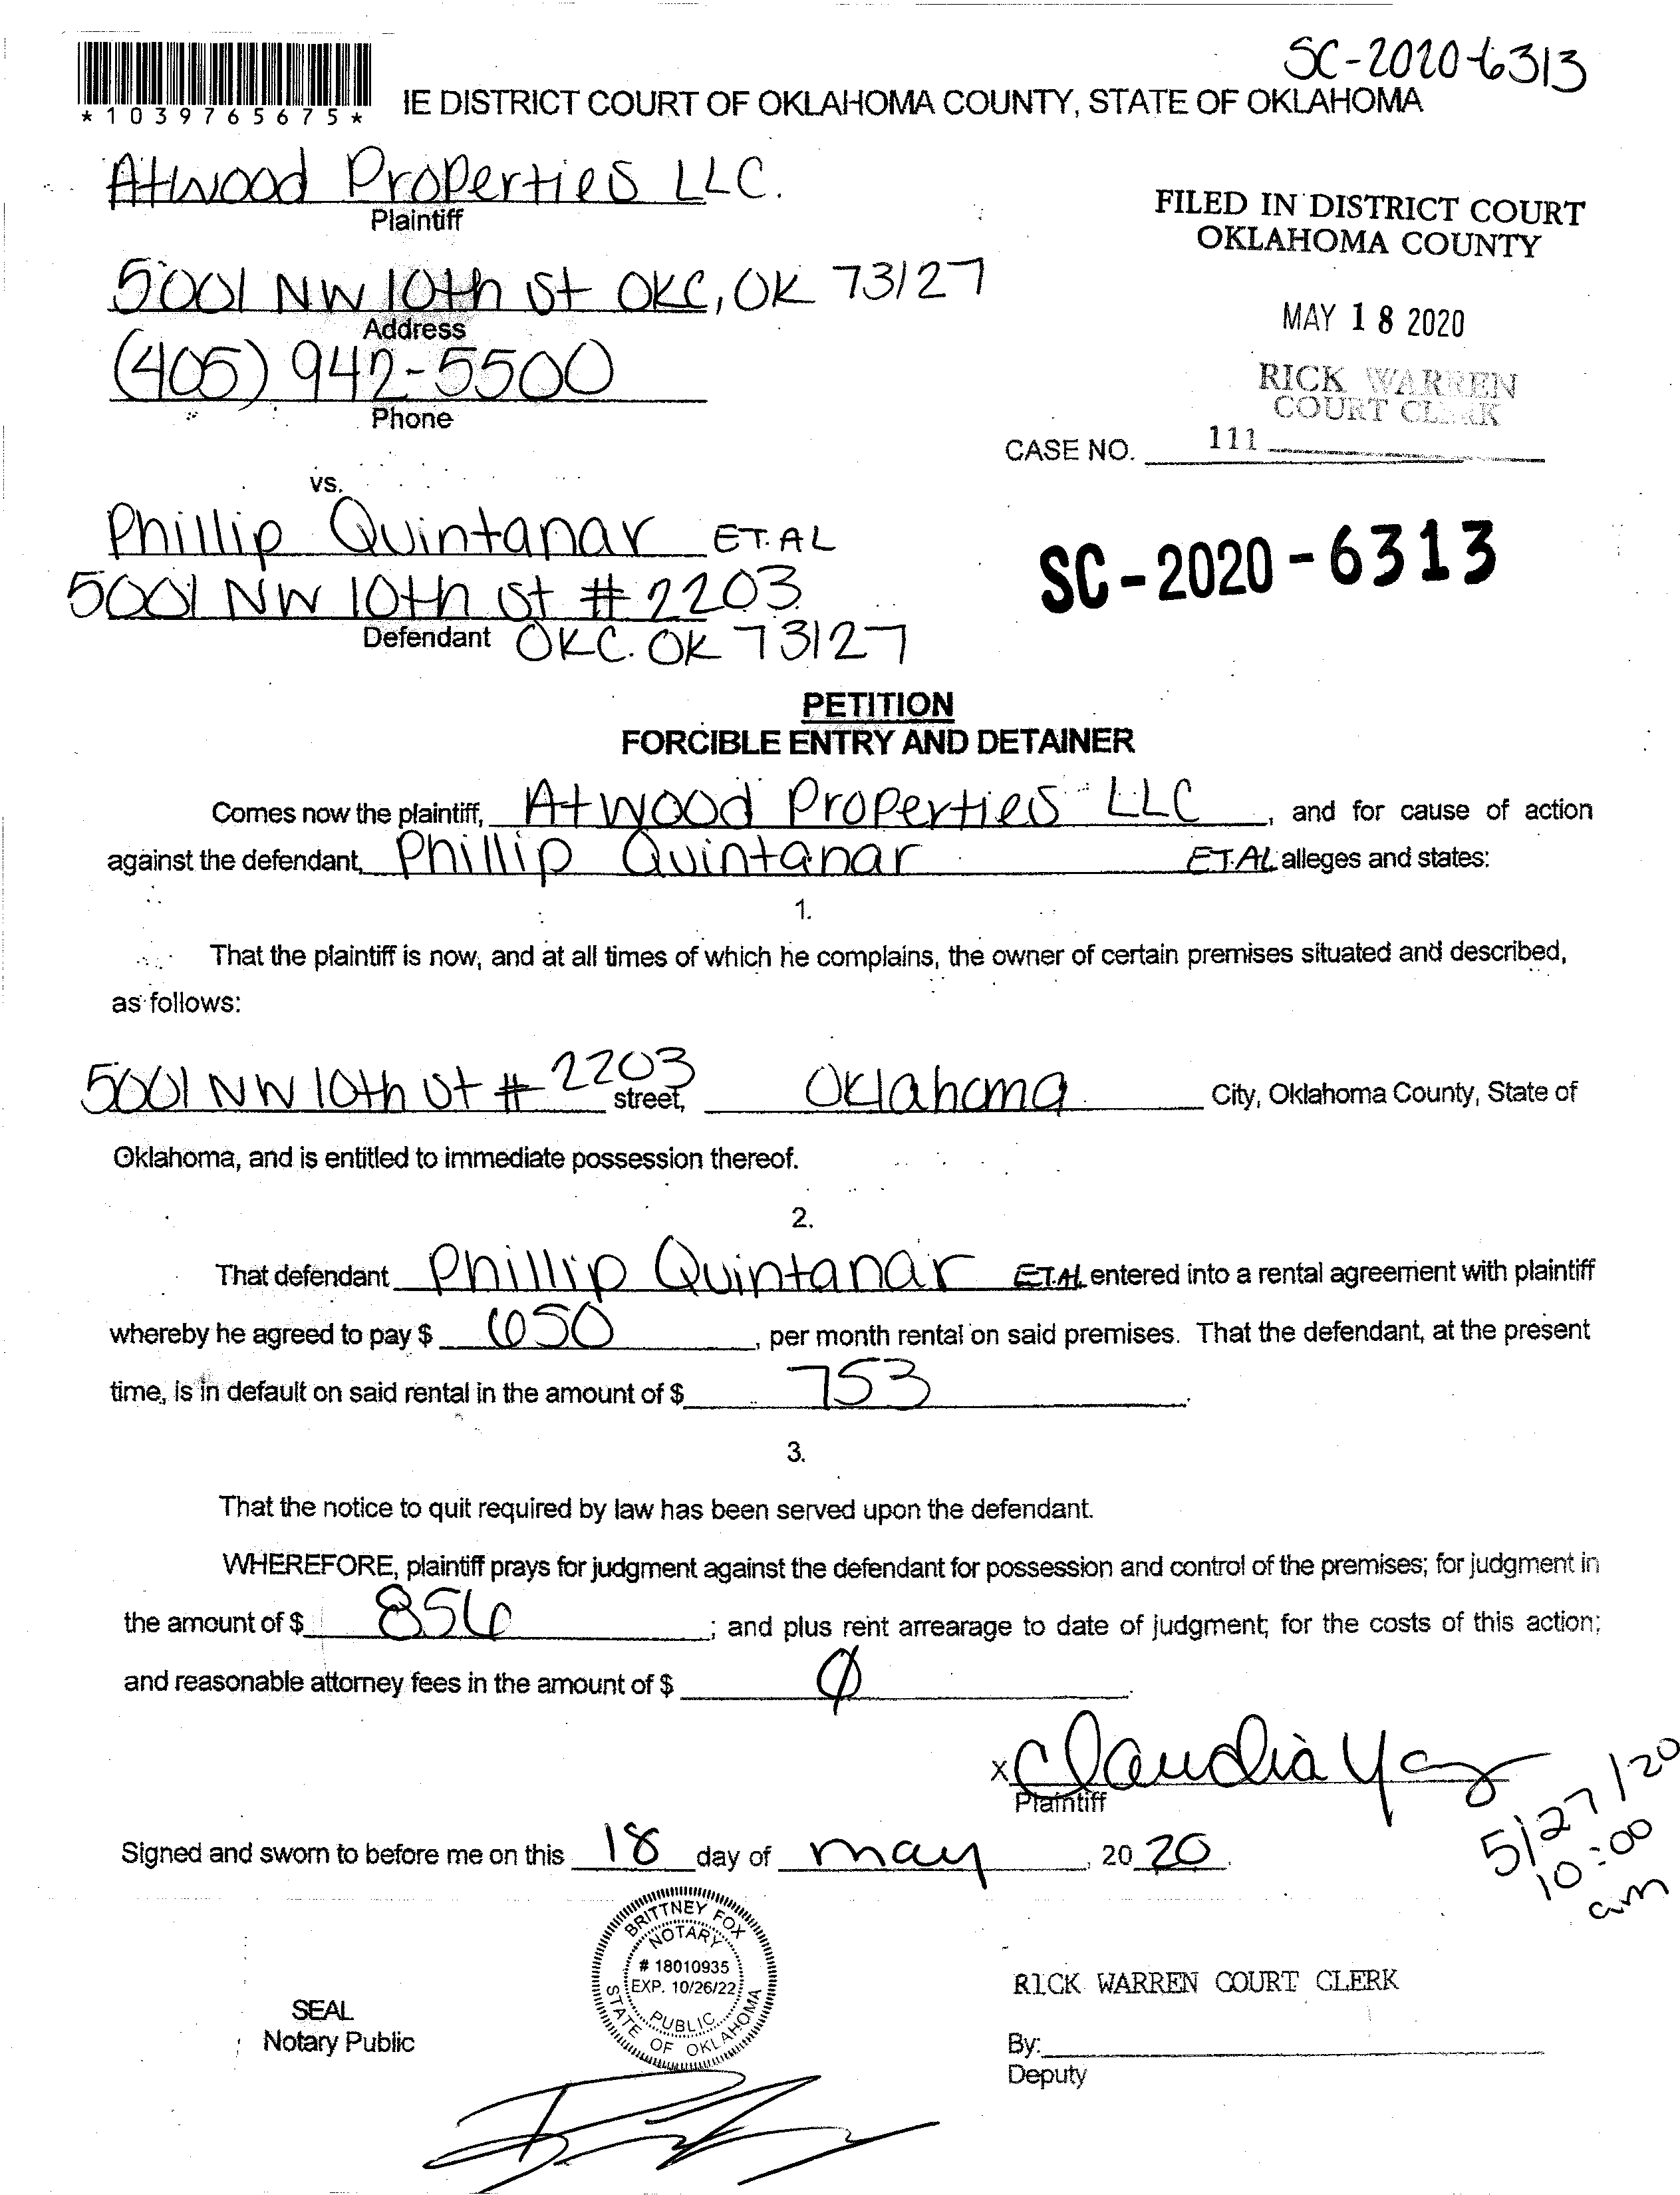 SC-2020-6313
*1039765675*
IE DISTRICT COURT OF OKLAHOMA COUNTY, STATE OF OKLAHOMA
Atwood Properties LLC.
Plaintiff
FILED IN DISTRICT COURT
OKLAHOMA COUNTY
5001 NW 10th St OKC, OK 73127
Address
MAY 18 2020
(405) 942-5500
Phone
RICK WARREN
COURT CLERK
CASE NO. 111
vs.
Phillip Quintanar ET.AL
5001 NW 10th St # 2203
Defendant OKC. OK 73127
SC-2020-6313
PETITION
FORCIBLE ENTRY AND DETAINER
Comes now the plaintiff, Atwood Properties LLC, and for cause of action
against the defendant, Phillip Quintanar ET.AL alleges and states:
1.
That the plaintiff is now, and at all times of which he complains, the owner of certain premises situated and described,
as follows:
5001 NW 10th St # 2203 street, Oklahoma City, Oklahoma County, State of
Oklahoma, and is entitled to immediate possession thereof.
2.
That defendant Phillip Quintanar ET.AL entered into a rental agreement with plaintiff
whereby he agreed to pay $ 650, per month rental on said premises. That the defendant, at the present
time, is in default on said rental in the amount of $ 753.
3.
That the notice to quit required by law has been served upon the defendant.
WHEREFORE, plaintiff prays for judgment against the defendant for possession and control of the premises; for judgment in
the amount of $ 856; and plus rent arrearage to date of judgment; for the costs of this action;
and reasonable attorney fees in the amount of $ Ø.
x Claudia
Plaintiff
5/27/20
10:00
am
Signed and sworn to before me on this 18 day of may, 2020.
BRITTNEY FOX
NOTARY
# 18010935
EXP. 10/26/22
PUBLIC
STATE OF OKLAHOMA
SEAL
Notary Public
RICK WARREN COURT CLERK
By:
Deputy